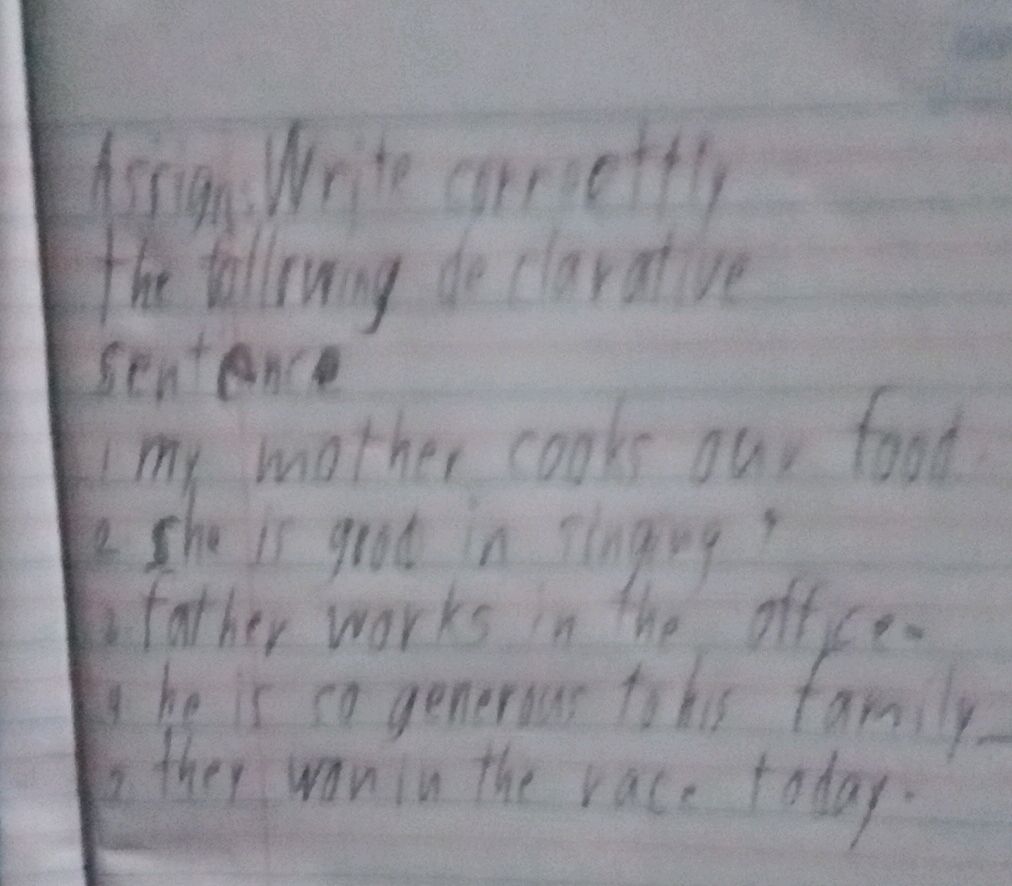 Assign: Write correettly
the following declarative
sentence
1 my mother cooks our food.
2. she is good in singing ?
3. father works in the office.
4 he is so generous to his family
5. they won in the race today.